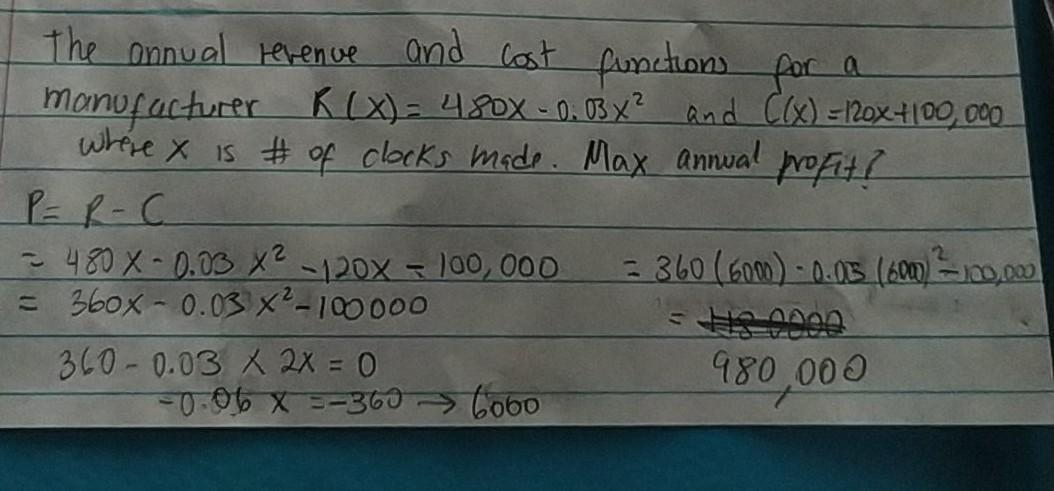 The annual revenue and cost functions for a
manufacturer R(X) = 480X - 0.03X² and C(X) = 120X+100,000
where X is # of clocks made. Max annual profit?
P = R - C
= 480X - 0.03X² - 120X - 100,000
= 360X - 0.03X² - 100000
360 - 0.03 X 2X = 0
-0.06 X = -360 → 6000
= 360(6000) - 0.03(6000)² - 100,000
=
980,000